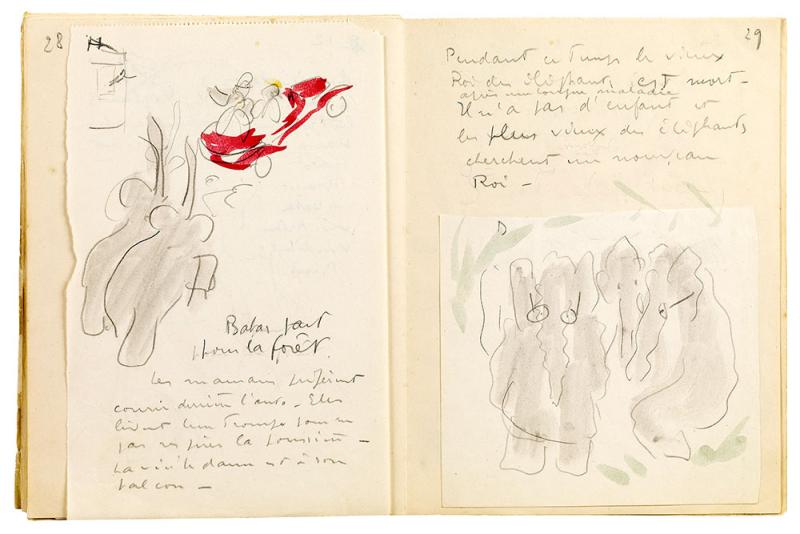 28
Babar part
pour la forêt.
Les mamans préfèrent
courir derrière l'auto - Elles
lèvent leur trompe pour ne
pas respirer la poussière -
La vieille dame est à son
balcon -
29
Pendant ce temps le vieux
Roi des éléphants est mort -
après une longue maladie
Il n'a pas d'enfant et
les plus vieux des éléphants
cherchent un nouveau
Roi -